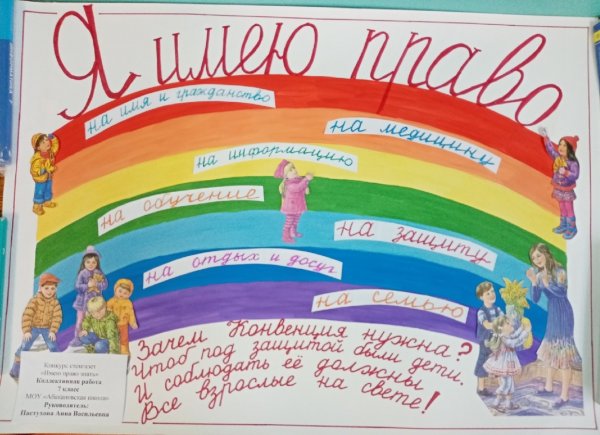 Я имею право
на имя и гражданство
на медицину
на информацию
на обучение
на защиту
на отдых и досуг
на семью
Зачем Конвенция нужна?
Чтоб под защитой были дети.
И соблюдать её должны
Все взрослые на свете!
Конкурс стенгазет
«Имею право знать»
Коллективная работа
7 класс
МОУ «Абакановская школа»
Руководитель:
Пастухова Анна Васильевна